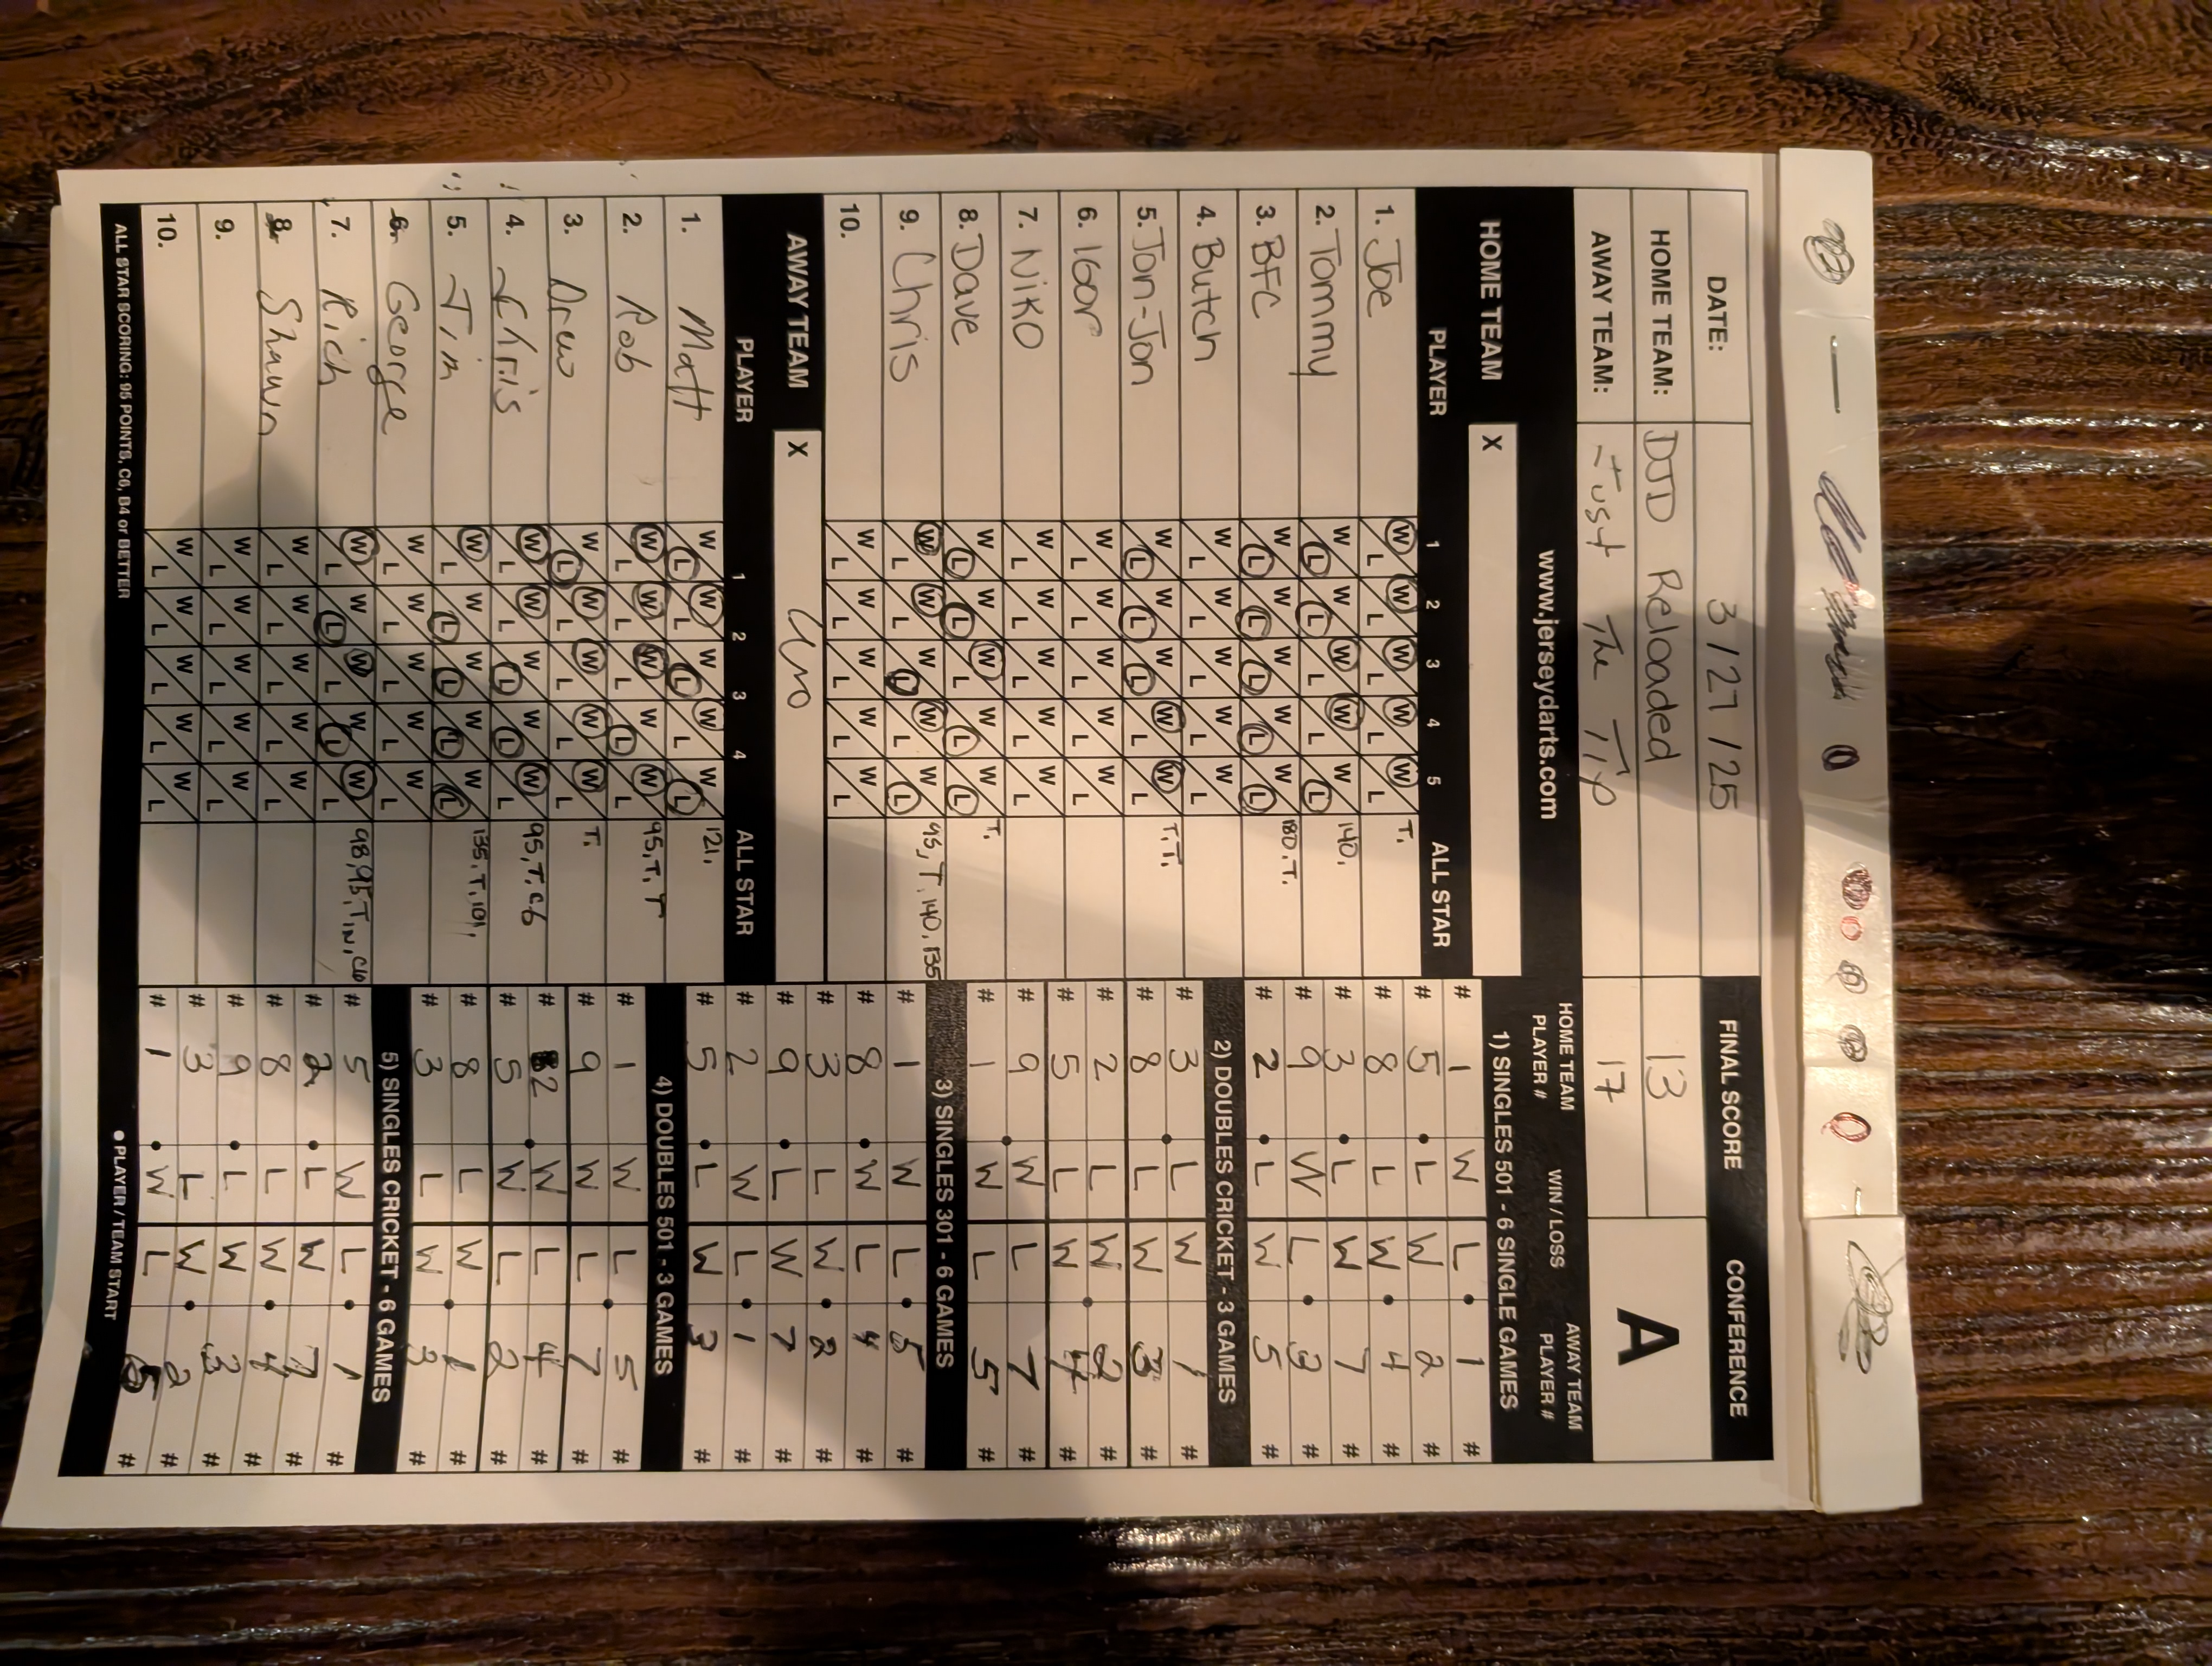 DATE: 3/27/25 FINAL SCORE CONFERENCE
HOME TEAM: DJD Reloaded 13 A
AWAY TEAM: Just The Tip 17
www.jerseydarts.com
HOME TEAM X
PLAYER 1 2 3 4 5 ALL STAR
1. Joe W L W L W L W L W L T.
2. Tommy W L W L W L W L W L 140.
3. BFC W L W L W L W L W L 180.T.
4. Butch W L W L W L W L W L
5. Jon-Jon W L W L W L W L W L T.T.
6. Igor W L W L W L W L W L
7. Niko W L W L W L W L W L
8. Dave W L W L W L W L W L T.
9. Chris W L W L W L W L W L 95, T. 140, 135
10. W L W L W L W L W L
AWAY TEAM X
PLAYER 1 2 3 4 ALL STAR
1. Matt W L W L W L W L W L 121.
2. Rob W L W L W L W L W L 95, T, T
3. Drew W L W L W L W L W L T.
4. Chris W L W L W L W L W L 95, T, C6
5. Tim W L W L W L W L W L 135, T, 101,
6. George W L W L W L W L W L
7. Rich W L W L W L W L W L 98, 95, T
8. Shawn W L W L W L W L W L
9. W L W L W L W L W L
10. W L W L W L W L W L
ALL STAR SCORING: 95 POINTS, C6, B4 or BETTER
HOME TEAM PLAYER # WIN / LOSS AWAY TEAM PLAYER #
1) SINGLES 501 - 6 SINGLE GAMES
# 1 W L 1 #
# 5 L W 2 #
# 8 L W 4 #
# 3 L W 7 #
# 9 W L 3 #
# 2 L W 5 #
2) DOUBLES CRICKET - 3 GAMES
# 3 L W 1 #
# 8 L W 3 #
# 2 L W 2 #
# 5 L W 4 #
# 9 W L 7 #
# 1 W L 5 #
3) SINGLES 301 - 6 GAMES
# 1 W L 5 #
# 8 W L 4 #
# 3 L W 2 #
# 9 L W 7 #
# 2 W L 1 #
# 5 L W 3 #
4) DOUBLES 501 - 3 GAMES
# 1 W L 5 #
# 9 W L 7 #
# 2 W L 4 #
# 5 W L 2 #
# 8 L W 1 #
# 3 L W 3 #
5) SINGLES CRICKET - 6 GAMES
# 5 W L 1 #
# 2 L W 7 #
# 8 L W 4 #
# 9 L W 3 #
# 3 L W 2 #
# 1 W L 5 #
● PLAYER / TEAM START